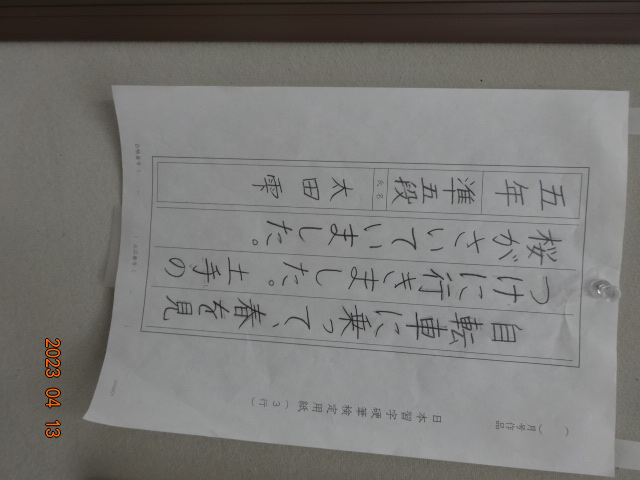 （　）月号作品
日本習字硬筆検定用紙（３行）
自転車に乗って、春を見
つけに行きました。土手の
桜がさいていました。
五年
準五段
氏名
太田雫
2023 04 13